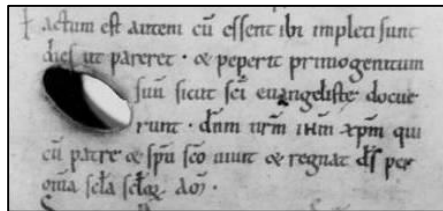 actum est autem cū essent ibi impleti sunt
dies ut pareret · & peperit primogenitum
suū sicut sc̄i euangeliste docue
runt · dn̄m nr̄m ihm̄ xpm̄ qui
cū patre & spū sc̄o uiuit & regnat ds̄ per
om̄ia scl̄a